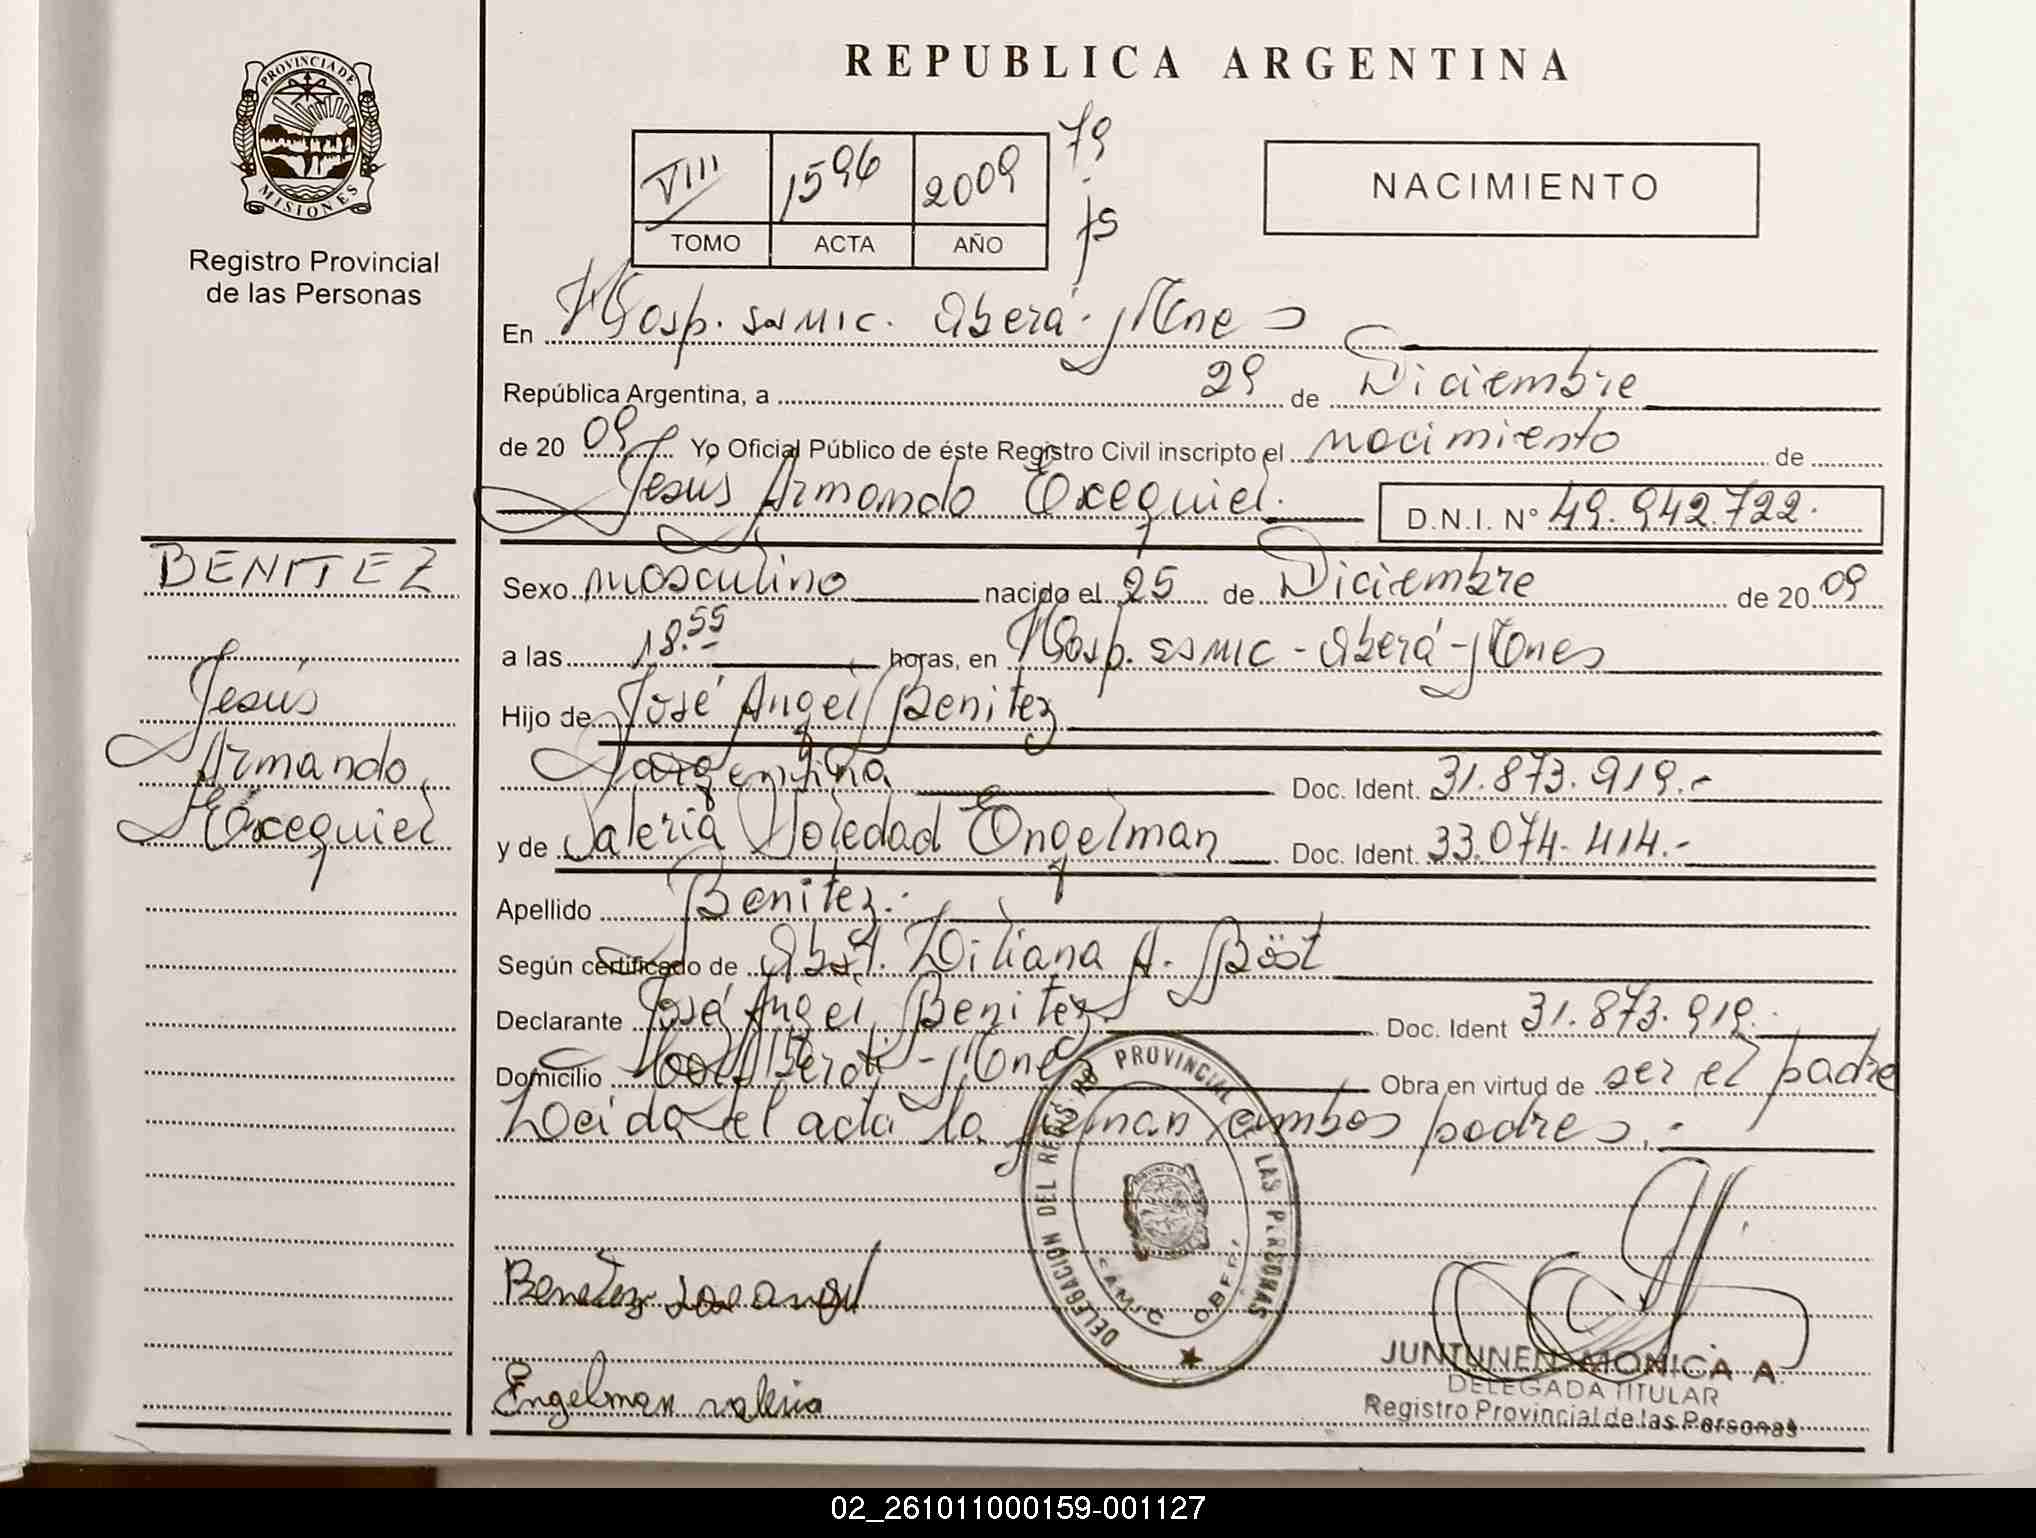 PROVINCIA DE
MISIONES
Registro Provincial
de las Personas
REPUBLICA ARGENTINA
VIII 1596 2009 79
TOMO ACTA AÑO js
NACIMIENTO
En Hosp. SAMIC. Oberá - Mnes
República Argentina, a 29 de Diciembre
de 20 09 Yo Oficial Público de éste Registro Civil inscripto el nacimiento de
Jesús Armando Exequiel. D.N.I. N° 49.942.722.
BENITEZ
Jesús
Armando
Exequiel
Sexo masculino nacido el 25 de Diciembre de 20 09
a las 18.55 horas, en Hosp. SAMIC - Oberá - Mnes
Hijo de José Angel Benitez
argentina Doc. Ident. 31.873.919.-
y de Valeria Soledad Engelman Doc. Ident. 33.074.414.-
Apellido Benitez.
Según certificado de Obst. Liliana A. Böst
Declarante José Angel Benitez Doc. Ident 31.873.919.
Domicilio Oberá - Mnes Obra en virtud de ser el padre
Leida el acta la firman ambos padres.-
DELEGACION DEL REG. PROVINCIAL LAS PERSONAS
SAMIC OBERA
Benitez Jose angel
Engelman valeria
JUNTUNEN MONICA A.
DELEGADA TITULAR
Registro Provincial de las Personas
02_261011000159-001127